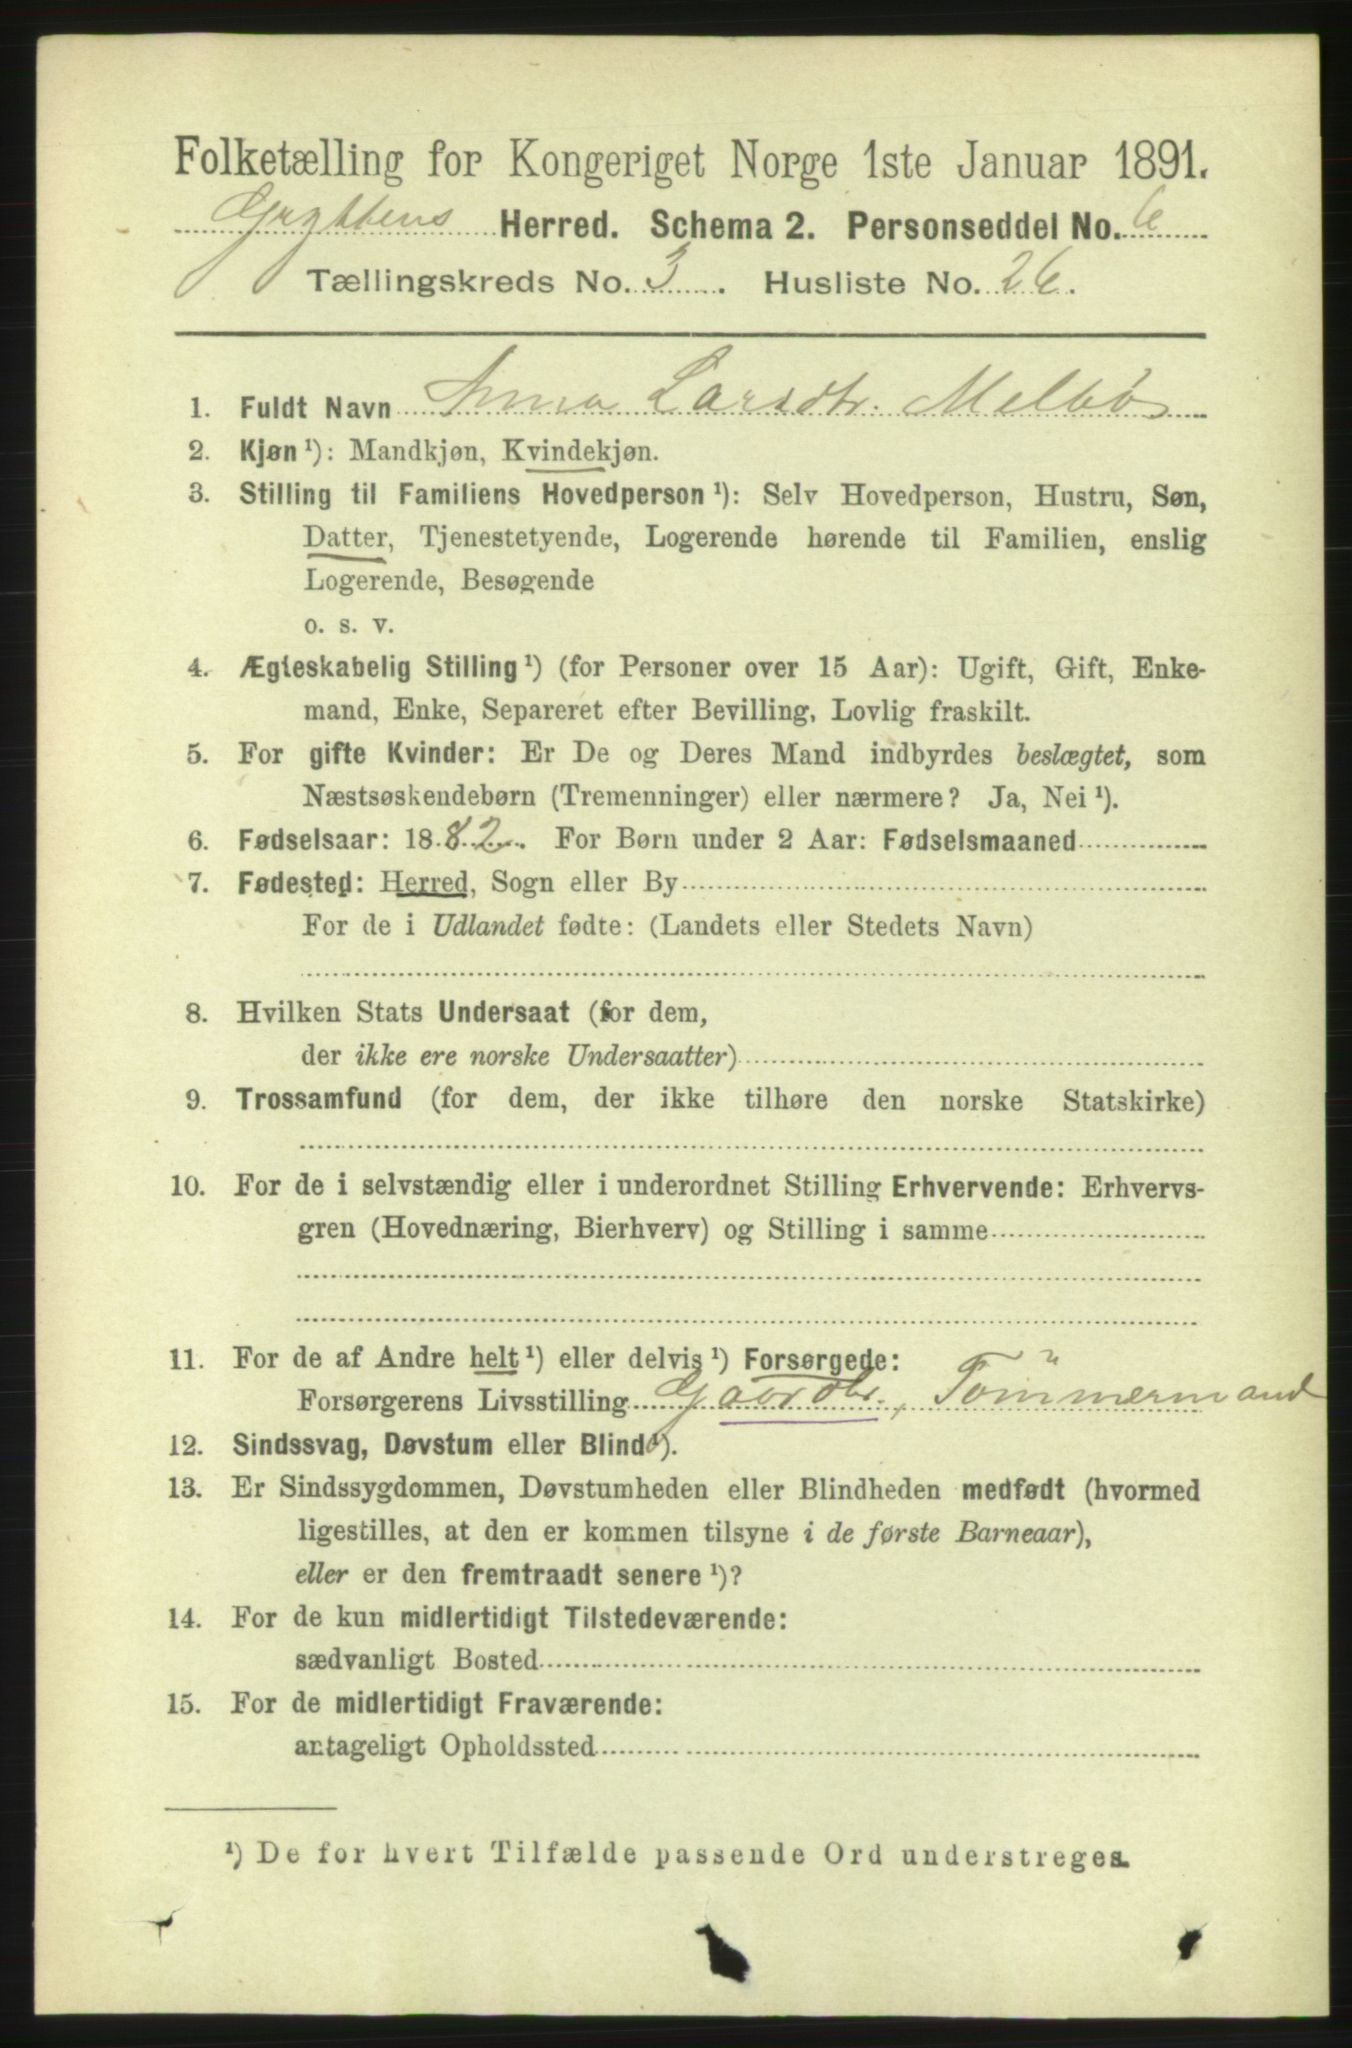 Folketælling for Kongeriget Norge 1ste Januar 1891.
Gryttens Herred. Schema 2. Personseddel No. 6
Tællingskreds No. 3. Husliste No. 26.
1. Fuldt Navn Anna Larsdtr. Melbø
2. Kjøn ¹): Mandkjøn, Kvindekjøn.
3. Stilling til Familiens Hovedperson ¹): Selv Hovedperson, Hustru, Søn,
Datter, Tjenestetyende, Logerende hørende til Familien, enslig
Logerende, Besøgende
o. s. v.
4. Ægteskabelig Stilling ¹) (for Personer over 15 Aar): Ugift, Gift, Enke-
mand, Enke, Separeret efter Bevilling, Lovlig fraskilt.
5. For gifte Kvinder: Er De og Deres Mand indbyrdes beslægtet, som
Næstsøskendebørn (Tremenninger) eller nærmere? Ja, Nei ¹).
6. Fødselsaar: 1882. For Børn under 2 Aar: Fødselsmaaned
7. Fødested: Herred, Sogn eller By
For de i Udlandet fødte: (Landets eller Stedets Navn)
8. Hvilken Stats Undersaat (for dem,
der ikke ere norske Undersaatter)
9. Trossamfund (for dem, der ikke tilhøre den norske Statskirke)
10. For de i selvstændig eller i underordnet Stilling Erhvervende: Erhvervs-
gren (Hovednæring, Bierhverv) og Stilling i samme
11. For de af Andre helt ¹) eller delvis ¹) Forsørgede:
Forsørgerens Livsstilling Gaardbr., Tömmermand
12. Sindssvag, Døvstum eller Blind ¹).
13. Er Sindssygdommen, Døvstumheden eller Blindheden medfødt (hvormed
ligestilles, at den er kommen tilsyne i de første Barneaar),
eller er den fremtraadt senere ¹)?
14. For de kun midlertidigt Tilstedeværende:
sædvanligt Bosted
15. For de midlertidigt Fraværende:
antageligt Opholdssted
¹) De for hvert Tilfælde passende Ord understreges.